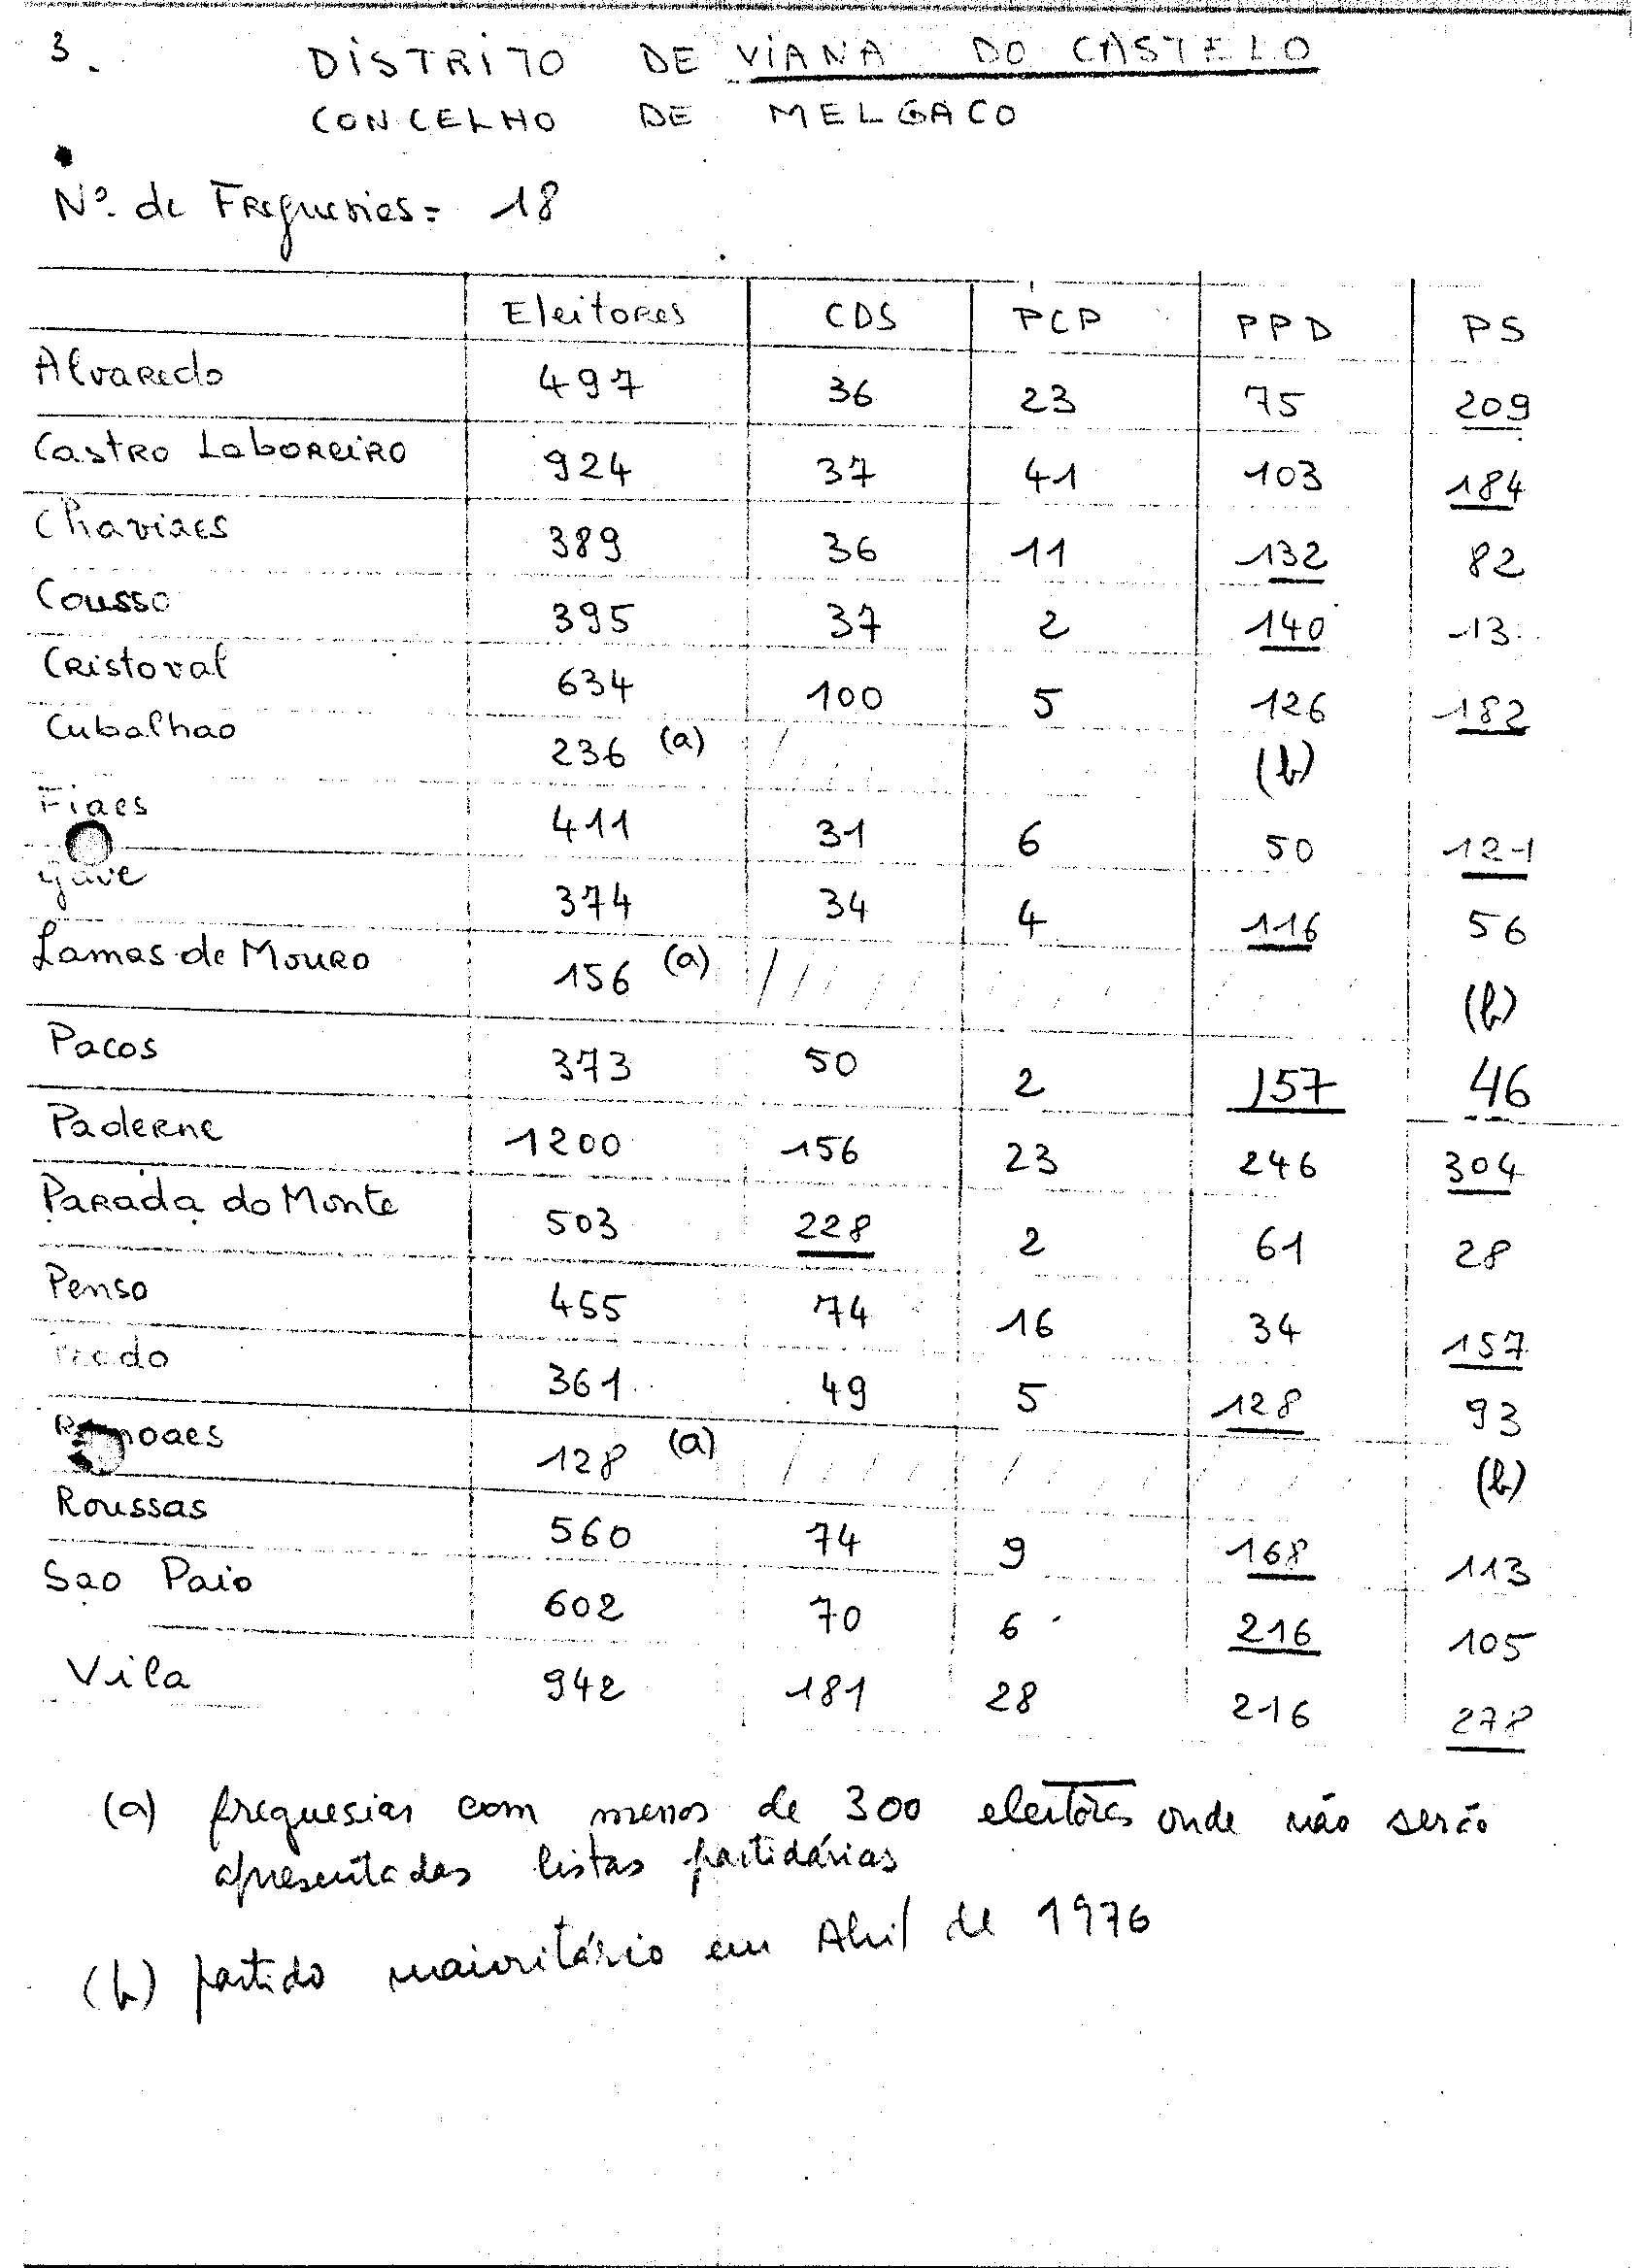 3.
DISTRITO DE VIANA DO CASTELO
CONCELHO DE MELGACO
Nº. de Freguesias = 18
Eleitores CDS PCP PPD PS
Alvaredo 497 36 23 75 209
Castro Laboreiro 924 37 41 103 184
Chaviaes 389 36 11 132 82
Cousso 395 37 2 140 13
Cristoval 634 100 5 126 182
Cubalhao 236 (a) (b)
Fiaes 411 31 6 50 121
Gave 374 34 4 116 56
Lamas de Mouro 156 (a) (b)
Pacos 373 50 2 157 46
Paderne 1200 156 23 246 304
Parada do Monte 503 228 2 61 28
Penso 455 74 16 34 157
361 49 5 128 93
128 (a) (b)
Roussas 560 74 9 168 113
Sao Paio 602 70 6 216 105
Vila 942 181 28 216 278
(a) freguesias com menos de 300 eleitores onde não serão
apresentadas listas partidárias
(b) partido maioritário em Abril de 1976